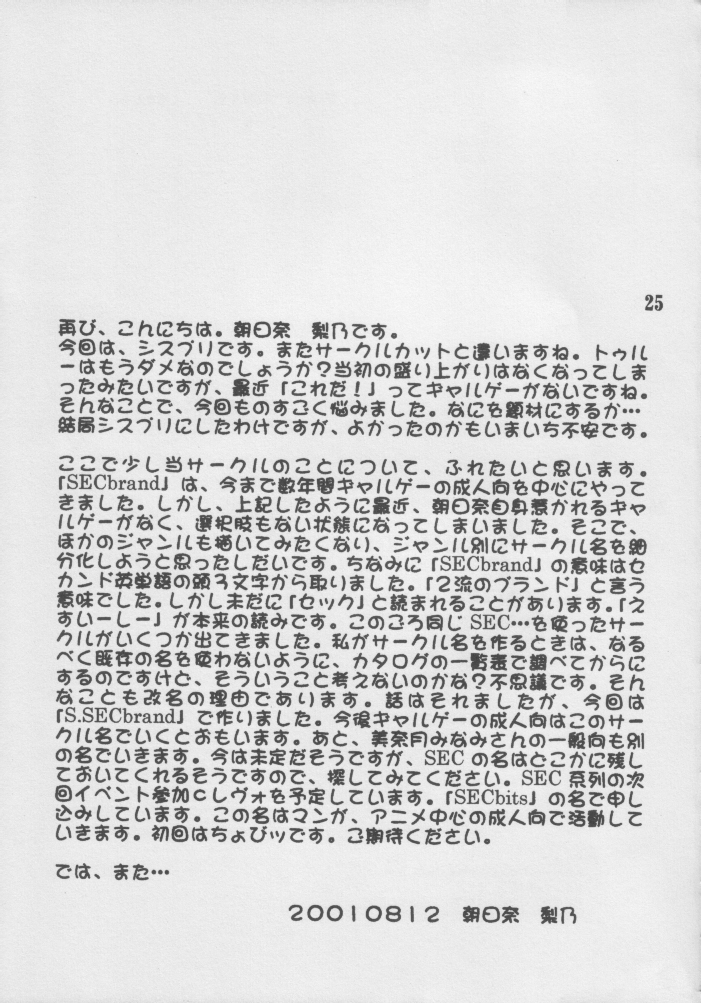 25
再び、こんにちは。朝日奈　梨乃です。
今回は、シスプリです。またサークルカットと違いますね。トゥル
ーはもうダメなのでしょうか?当初の盛り上がりはなくなってしま
ったみたいですが、最近「これだ!」ってギャルゲーがないですね。
そんなことで、今回ものすごく悩みました。なにを題材にするか…
結局シスプリにしたわけですが、よかったのかもいまいち不安です。
ここで少し当サークルのことについて、ふれたいと思います。
「SECbrand」は、今まで数年間ギャルゲーの成人向を中心にやって
きました。しかし、上記したように最近、朝日奈自身惹かれるギャ
ルゲーがなく、選択肢もない状態になってしまいました。そこで、
ほかのジャンルも描いてみたくなり、ジャンル別にサークル名を細
分化しようと思ったしだいです。ちなみに「SECbrand」の意味はセ
カンド英単語の頭3文字から取りました。「2流のブランド」と言う
意味でした。しかし未だに「セック」と読まれることがあります。「え
すいーしー」が本来の読みです。このごろ同じSEC…を使ったサー
クルがいくつか出てきました。私がサークル名を作るときは、なる
べく既存の名を使わないように、カタログの一覧表で調べてからに
するのですけど、そういうこと考えないのかな?不思議です。そん
なことも改名の理由であります。話はそれましたが、今回は
「S.SECbrand」で作りました。今後ギャルゲーの成人向はこのサー
クル名でいくとおもいます。あと、美奈月みなみさんの一般向も別
の名でいきます。今は未定だそうですが、SECの名はどこかに残し
ておいてくれるそうですので、探してみてください。SEC系列の次
回イベント参加Cレヴォを予定しています。「SECbits」の名で申し
込みしています。この名はマンガ、アニメ中心の成人向で活動して
いきます。初回はちょびッです。ご期待ください。
では、また…
20010812　朝日奈　梨乃